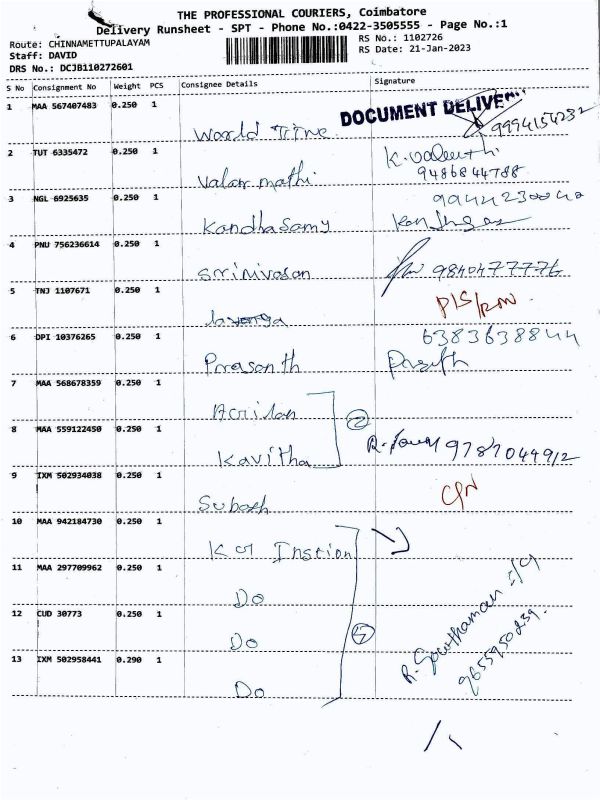 THE PROFESSIONAL COURIERS, Coimbatore
Delivery Runsheet - SPT - Phone No.:0422-3505555 - Page No.:1
Route: CHINNAMETTUPALAYAM RS No.: 1102726
Staff: DAVID RS Date: 21-Jan-2023
DRS No.: DCJB110272601
S No Consignment No Weight PCS Consignee Details Signature
1 MAA 567407483 0.250 1 DOCUMENT DELIVE
World Time
2 TUT 6335472 0.250 1
Valar mathi 9486844788
3 NGL 6925635 0.250 1
Kandhasamy
4 PNU 756236614 0.250 1
Srinivasan
5 TNJ 1107671 0.250 1
6 DPI 10376265 0.250 1 6383638844
Prasanth
7 MAA 568678359 0.250 1
8 MAA 559122450 0.250 1 2
Kavitha
9 IXM 502934038 0.250 1
Subash
10 MAA 942184730 0.250 1
11 MAA 297709962 0.250 1
Do
12 CUD 30773 0.250 1
Do
13 IXM 502958441 0.290 1
Do
R. Gowthaman
9655950239